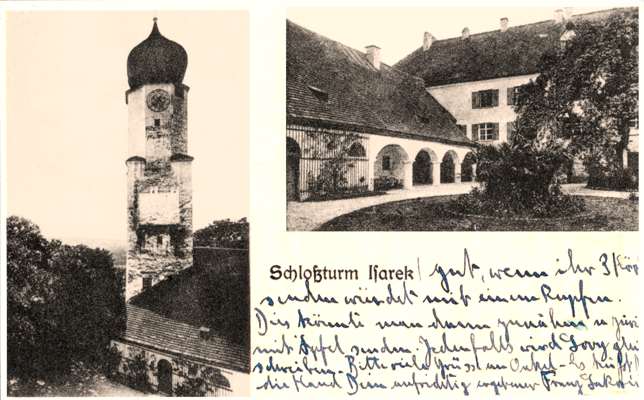 Schloßturm Isarek
gut, wenn ihr 3 Kör
senden würdet mit einem Rupfen.
Dies könnte man dann zunähen u
mit Apfel senden. Jedenfalls wird
schreiben. Bitte viele Grüsse an Onkel
die Hand Dein aufrichtig ergebener Franz